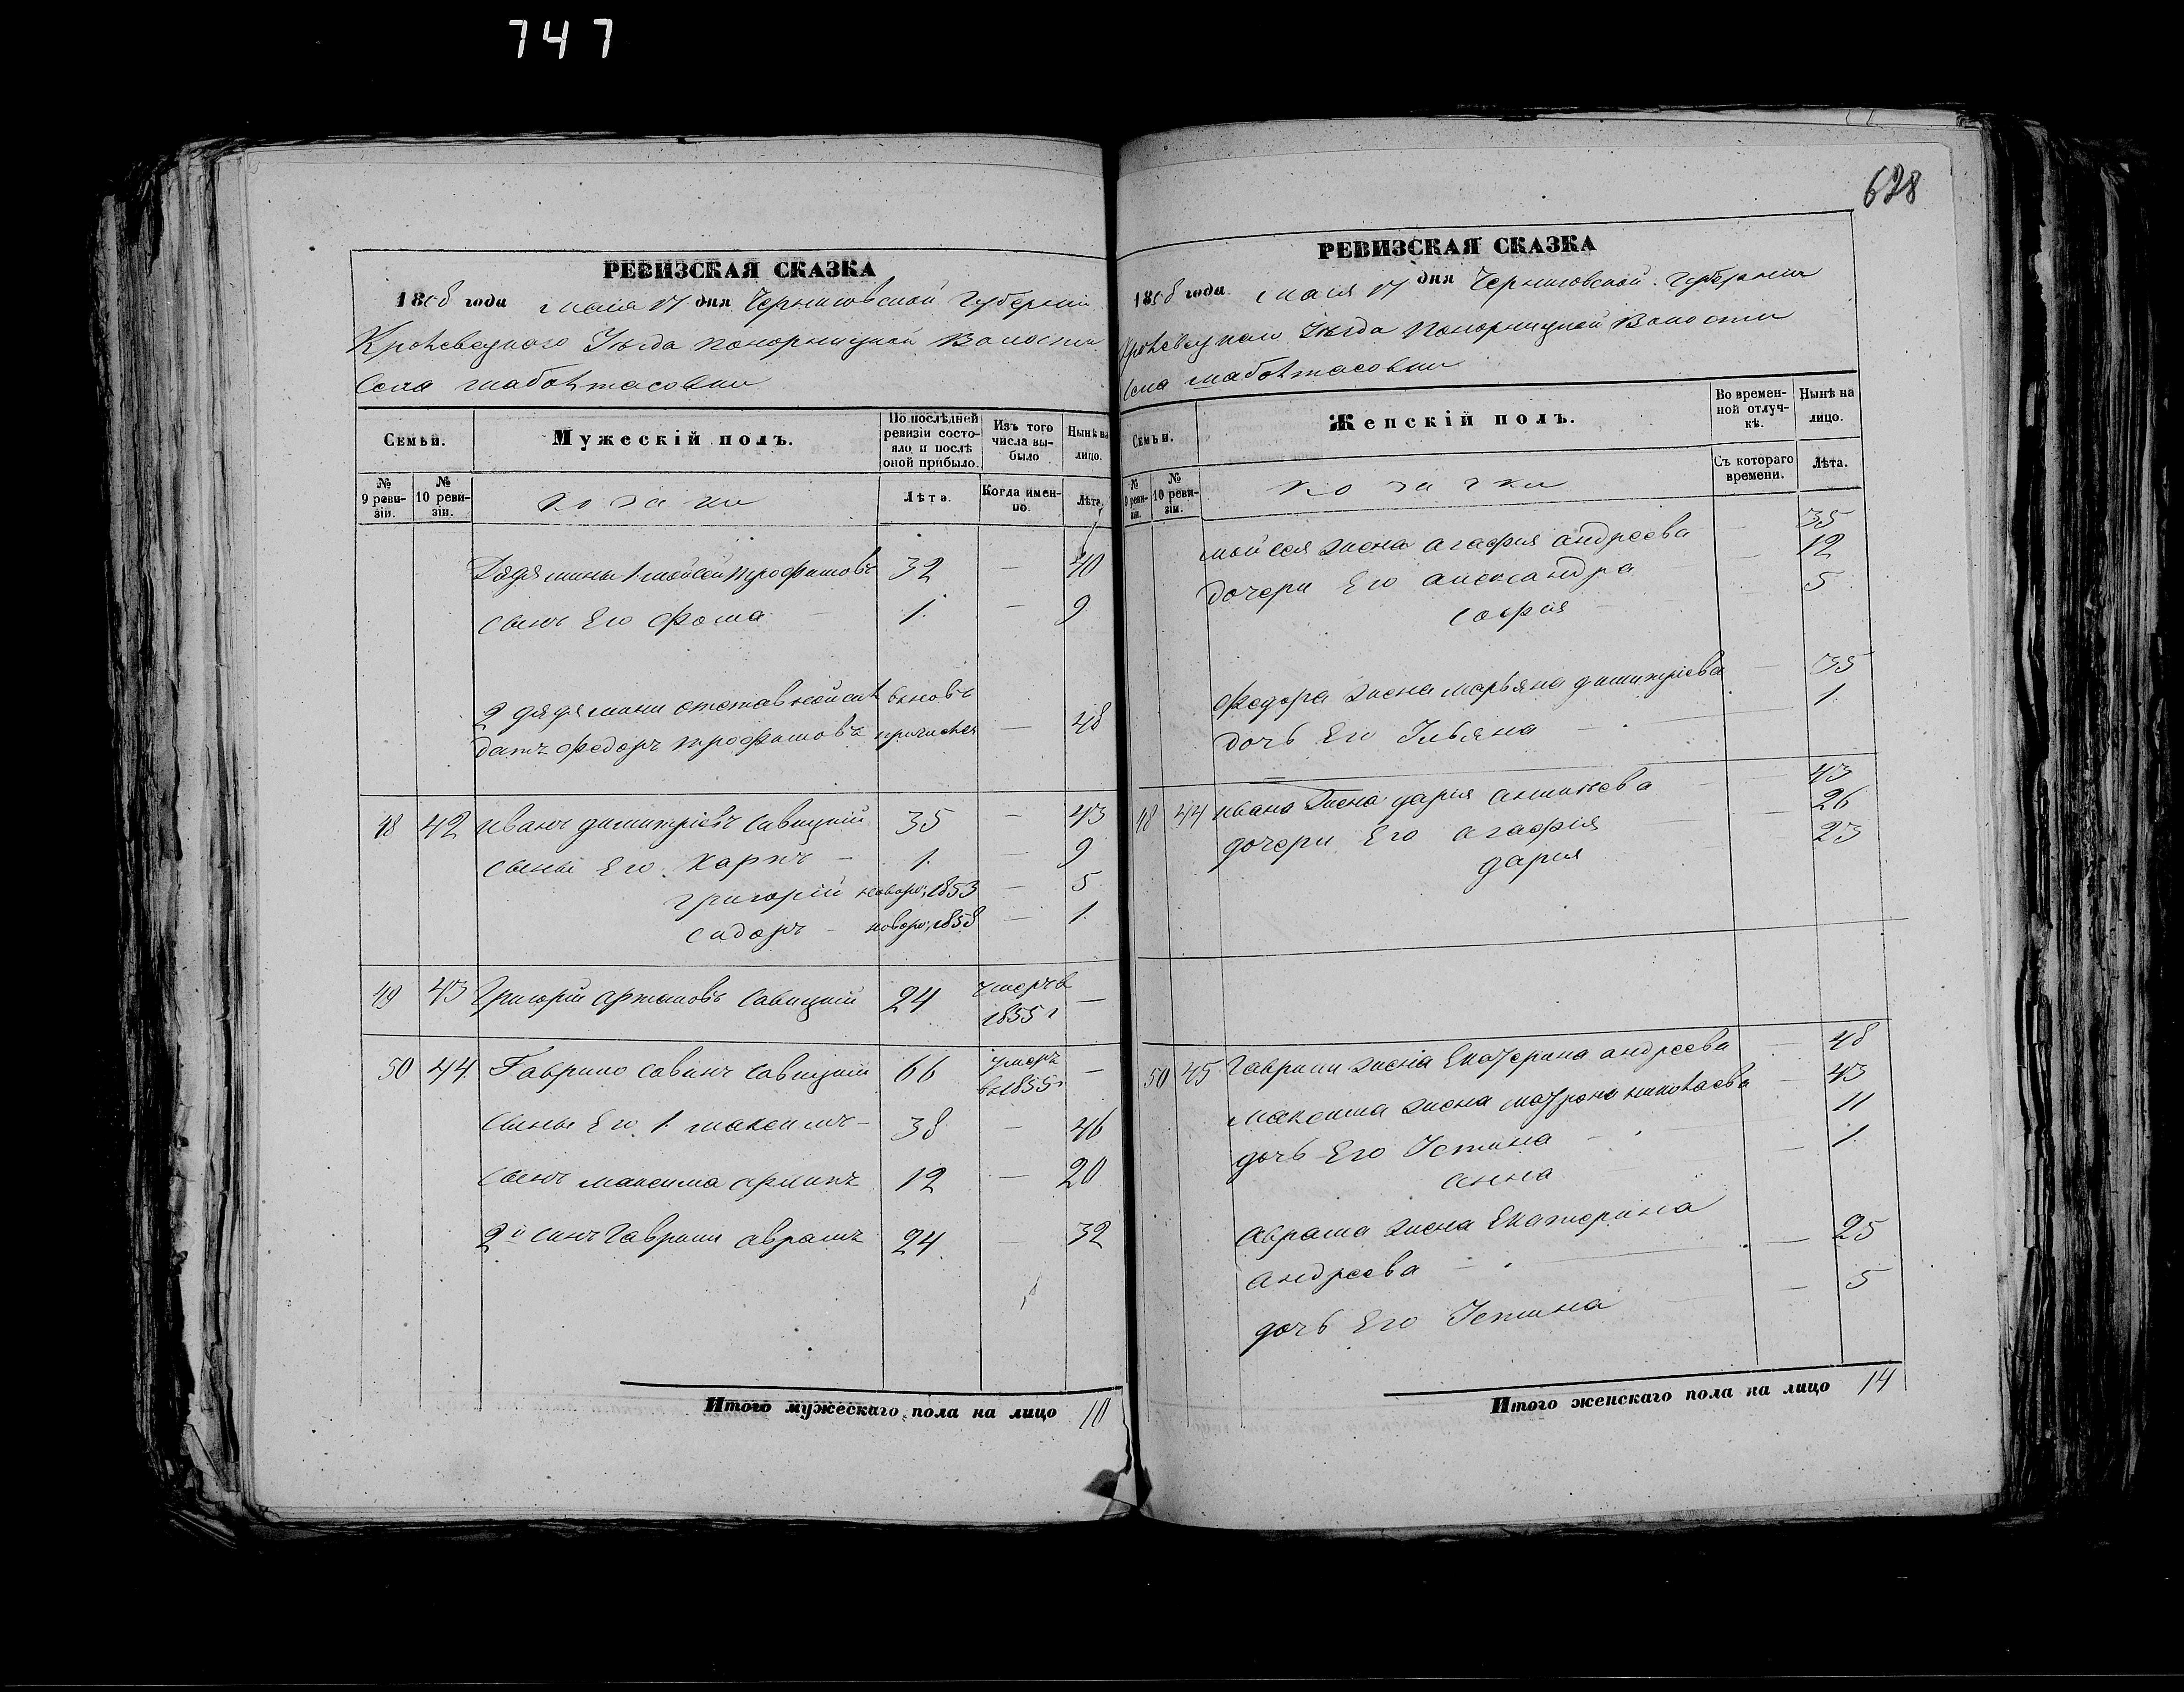 747
РЕВИЗСКАЯ СКАЗКА
1858 года маія 17 дня Черниговской Губерніи
Кролевецкаго Уѣзда Понорницкой Волости
Села
Семьи.
Мужескій полъ.
По послѣдней ревизіи состояло и послѣ оной прибыло.
Изъ того числа выбыло
Нынѣ на лицо.
№ 9 ревизіи.
№ 10 ревизіи.
козаки
Лѣта.
Когда именно.
Лѣта.
Дядя мины 1 мойсей трофимовъ 32 — 40
сынъ Его фома — 1. — 9
2 дядя мини отставной сол
датъ федоръ трофимовъ — 48
48 42 иванъ димитріевъ савицкій 35 — 43
сыны Его. Карпъ — 1. — 9
григорій новорож; 1853 — 5
сидоръ — новорож; 1858 — 1.
49 43 Григорій Савицкій 24 умеръ в 1855 г —
50 44 Гаврило савинъ савицкій 66 умеръ въ 1855 г —
сыны Его 1. максимъ — 38 — 46
сынъ максима 12 — 20
2й сынъ гаврили аврамъ 24. — 32
Итого мужескаго пола на лицо 10
628
РЕВИЗСКАЯ СКАЗКА
1858 года маія 17 дня Черниговской Губерніи
Кролевецкаго Уѣзда Понорницкой Волости
Села
Семьи.
Женскій полъ.
Во временной отлучкѣ.
Нынѣ на лицо.
№ 9 ревизіи.
№ 10 ревизіи.
козачки
Съ котораго времени.
Лѣта.
мойсея жена агафия андреева — 35
дочери Его александра — 12
софия — 5
федора жена марьяна димитріева — 35
дочь Его Ульяна — 1.
48 44 ивана жена дария — 43
дочери Его агафія — 26
дария 23
50 45 гаврили жена Екатерина андреева — 48
максима жена матрона николаева — 43
дочь Его Устина — 11
анна — 1.
аврама жена Екатерина
андреева — 25
дочь Его Устина — 5
Итого женскаго пола на лицо 14